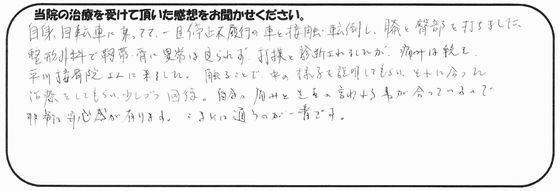 当院の治療を受けて頂いた感想をお聞かせください。
自身、自転車に乗ってて、一旦停止不履行の車と接触・転倒し、膝と臀部を打ちました。
整形外科で靭帯・骨に異常は見られず、打撲と診断されましたが、痛みは続き、
平川接骨院さんに来ました。触ることで、中の様子を説明してもらい、それに合った
治療をしてもらい、少しづつ回復。自分の痛みと先生の言われる事が合っているので
非常に安心感が有ります。こまめに通うのが一番です。